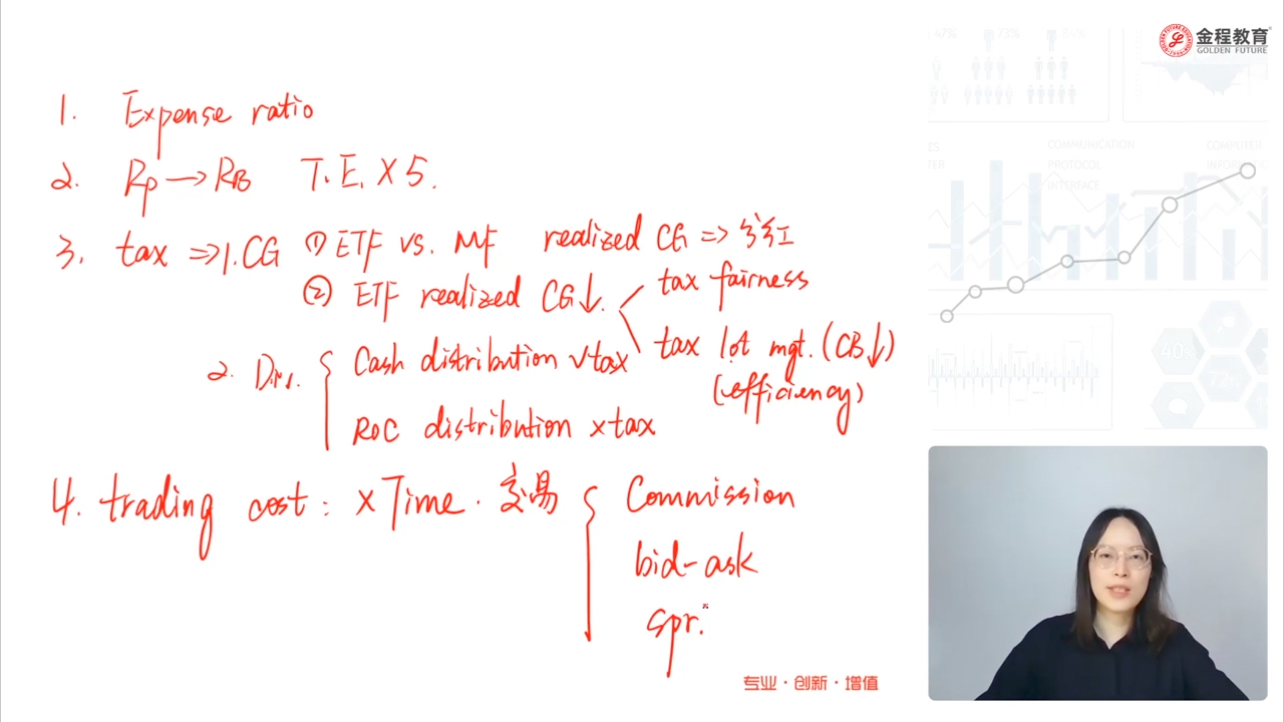 金程教育
GOLDEN FUTURE
1. Expense ratio
2. Rp → RB T.E. X 5.
3. tax ⇒ 1. CG ① ETF vs. MF realized CG ⇒ 分红
② ETF realized CG↓.
tax fairness
tax lot mgt. (CB↓)
(efficiency)
2. Div.
Cash distribution √tax
ROC distribution xtax
4. trading cost: x Time. 交易
Commission
bid-ask
spr.
47% 73%
COMMUNICATION
PROTOCOL
INTERFACE
COMPUTER
40%
专业·创新·增值